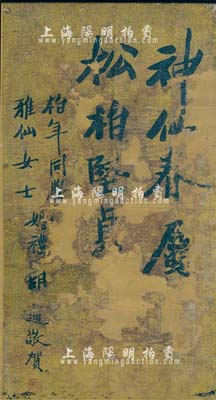 上海陽明拍賣
www.yangmingauction.com
神仙眷屬
松柏堅貞
柏年同學
雅仙女士 婚禮 胡適敬賀
上海陽明拍賣
www.yangmingauction.com
上海陽明拍賣
www.yangmingauction.com